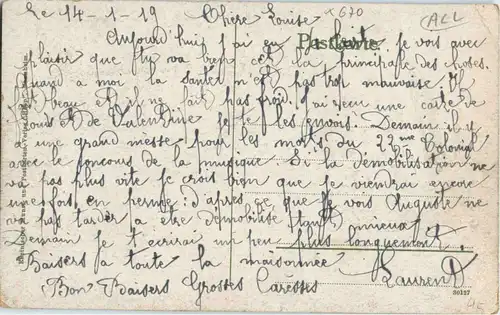 Le 14-1-19 Chère Louise 1670
ALL
Postkarte
Aujourd'hui j'ai eu ta lettre. Je vois avec
plaisir que tu va bien c'est la principale des choses.
Quand a moi la santer n'est pas trop mauvaise. Il
fait beau et il ne fait pas froid. J'ai reçu une carte de
Louis et de Valentine je te les envois. Demain il y
a une grand messe pour les morts du 22me Colonial
avec le concous de la musique. Si la démobilisation ne
va pas plus vite je crois bien que je viendrai encore
une fois en perme; d'après ce que je vois Auguste ne
va pas tarder a être démobilisé tant mieux.
Demain je t'écrirai un peu plus longuement.
Baisers a toute la maisonnée
Bon Baisers Grosses Caresses
Laurent
86127